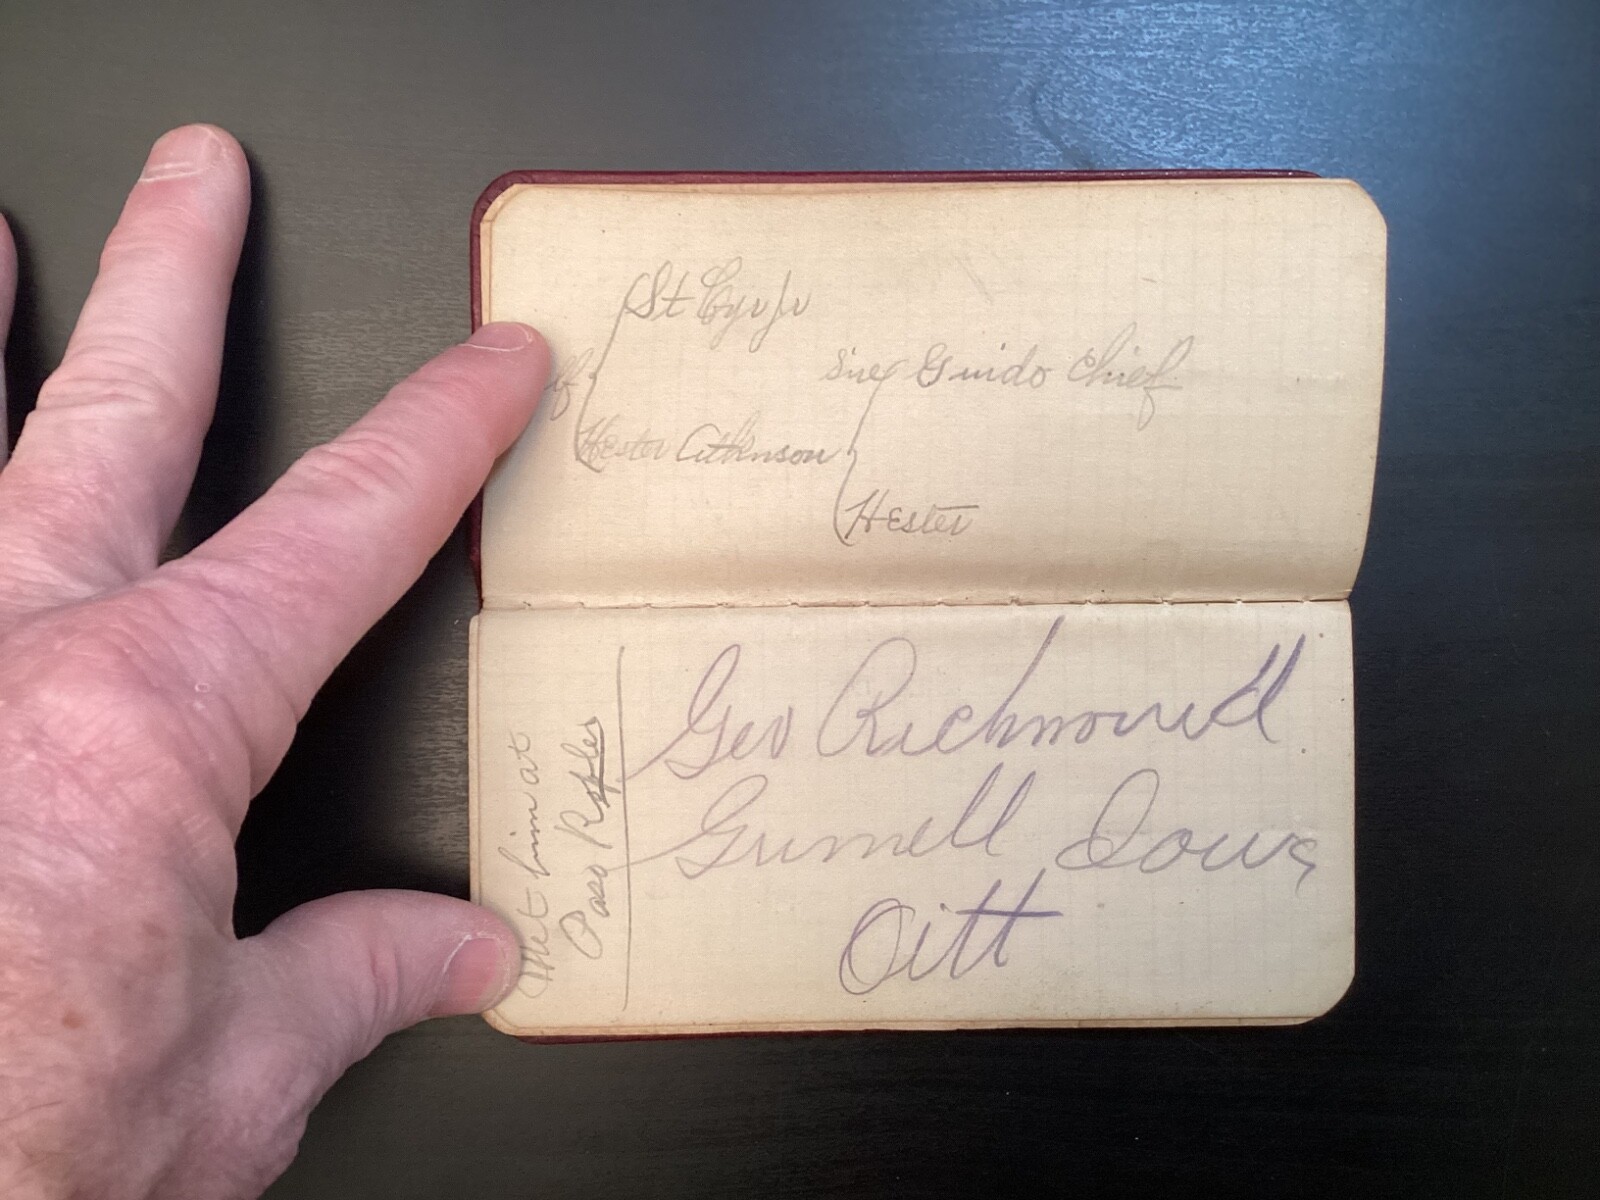 St Cyr Jr
Sire Guido Chief
Hester Atkinson
Hester
Met him at
Paso Robles
Geo Richmond
Grinnell Iowa